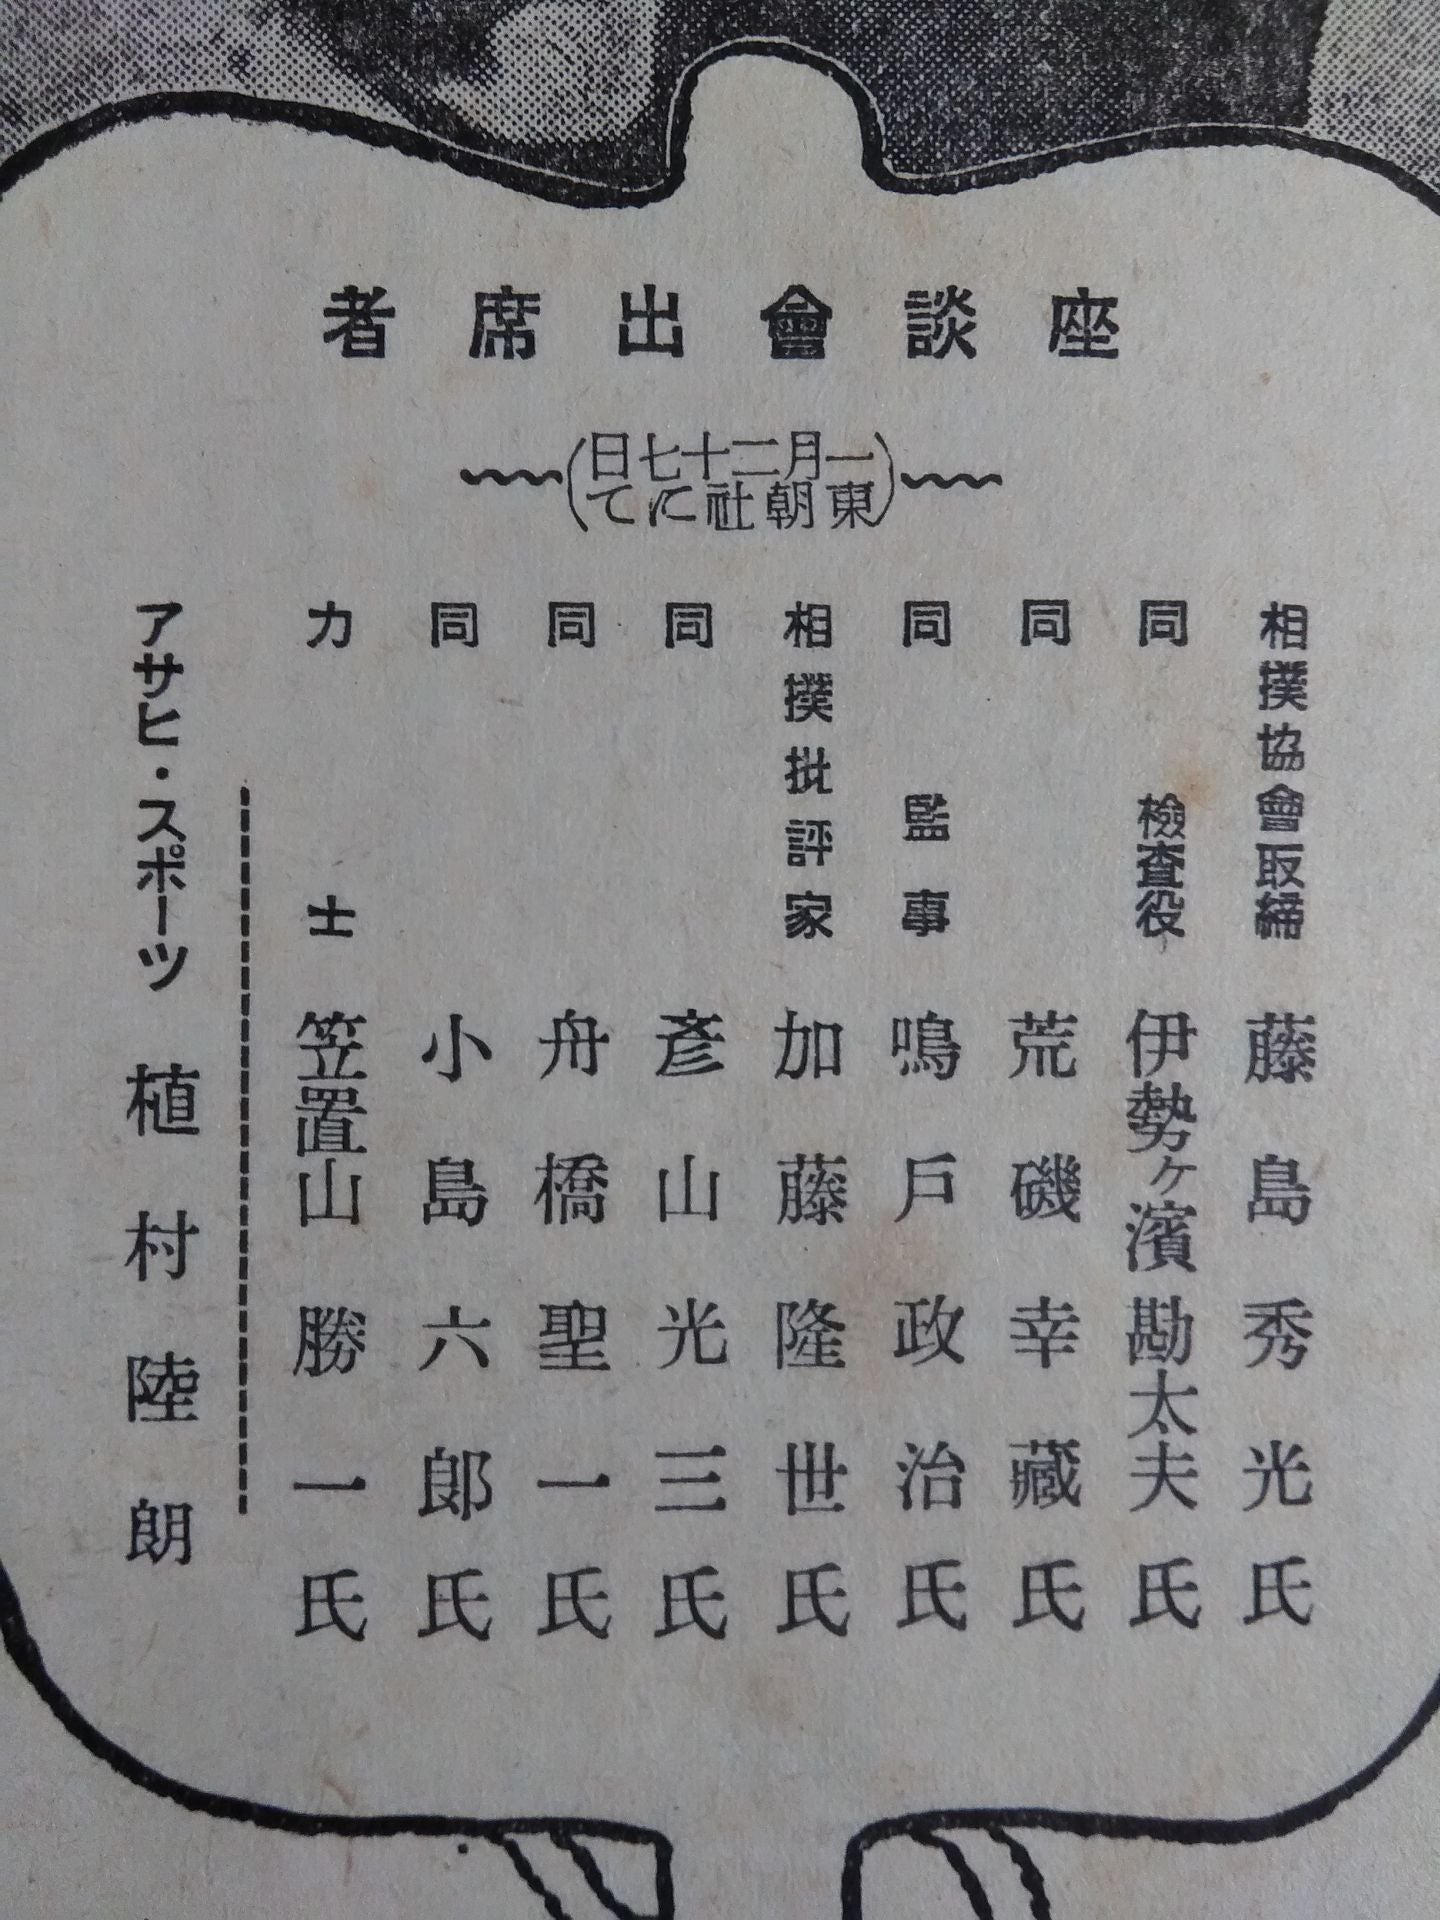 座談會出席者
(一月二十七日
東朝社にて)
相撲協會取締 藤島秀光氏
同 檢査役 伊勢ヶ濱勘太夫氏
同 荒磯幸藏氏
同 監事 鳴戶政治氏
相撲批評家 加藤隆世氏
同 彥山光三氏
同 舟橋聖一氏
同 小島六郞氏
力士 笠置山勝一氏
アサヒ・スポーツ 植村陸朗